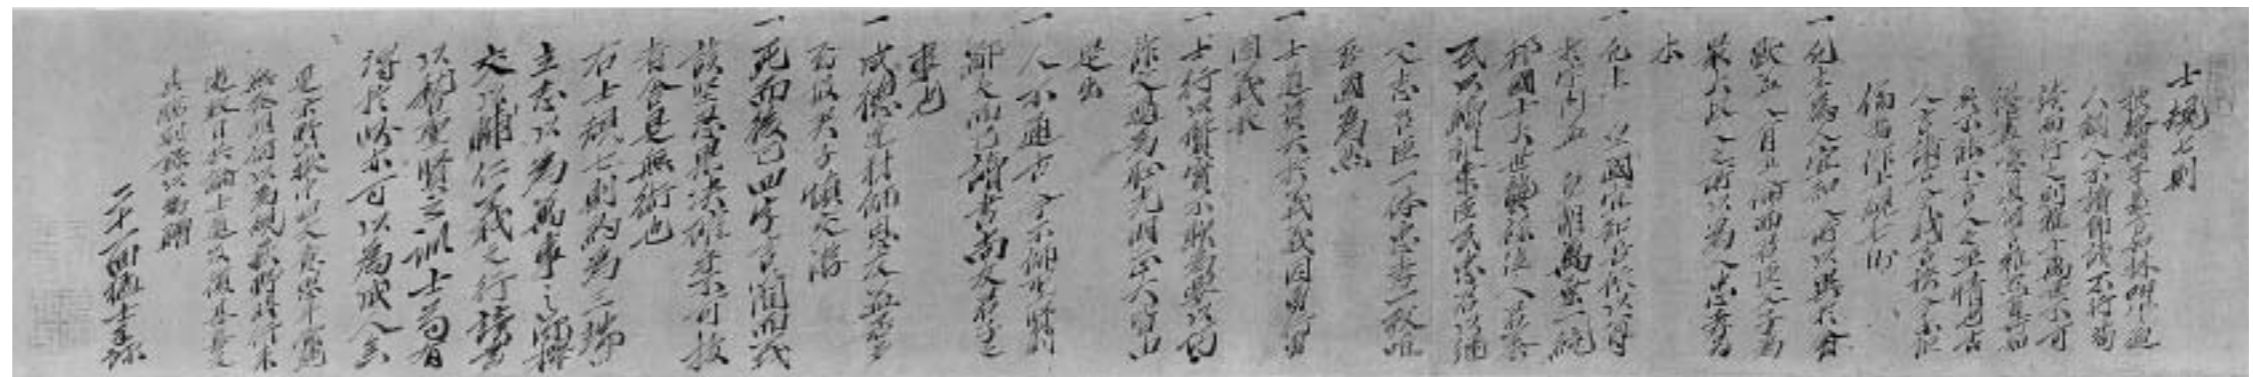 士規七則
披繙冊子嘉言如林躍々迫
人顧人不讀即讀不行苟
讀而行之則雖千萬世不可
得盡噫復何言雖然有所
知矣不能不言人之至情也古
人言諸古今我言諸今亦詎
傷焉作士規七則
一凡生為人宜知人所以異於禽
獸蓋人有五倫而君臣父子為
最大故人之所以為人忠孝為
本
一凡生 皇國宜知吾所以尊
於宇内蓋 皇朝萬葉一統
邦國士夫世襲禄位人君養
民以續祖業臣民忠君以継
父志君臣一体忠孝一致唯
吾國為然
一士道莫大於義義因勇行勇
因義長
一士行以質實不欺為要以巧
詐文過為恥光明正大皆由
是出
一人不通古今不師聖賢則
鄙夫而已讀書尚友君子之
事也
一成徳達材師恩友益居多
焉故君子慎交游
一死而後已四字言簡而義
該堅忍果決確乎不可抜
者舍是無術也
右士規七則約為三端曰
立志以為萬事之源擇
交以輔仁義之行讀書
以稽聖賢之訓士苟有
得於此亦可以為成人矣
二十一回猛士手録